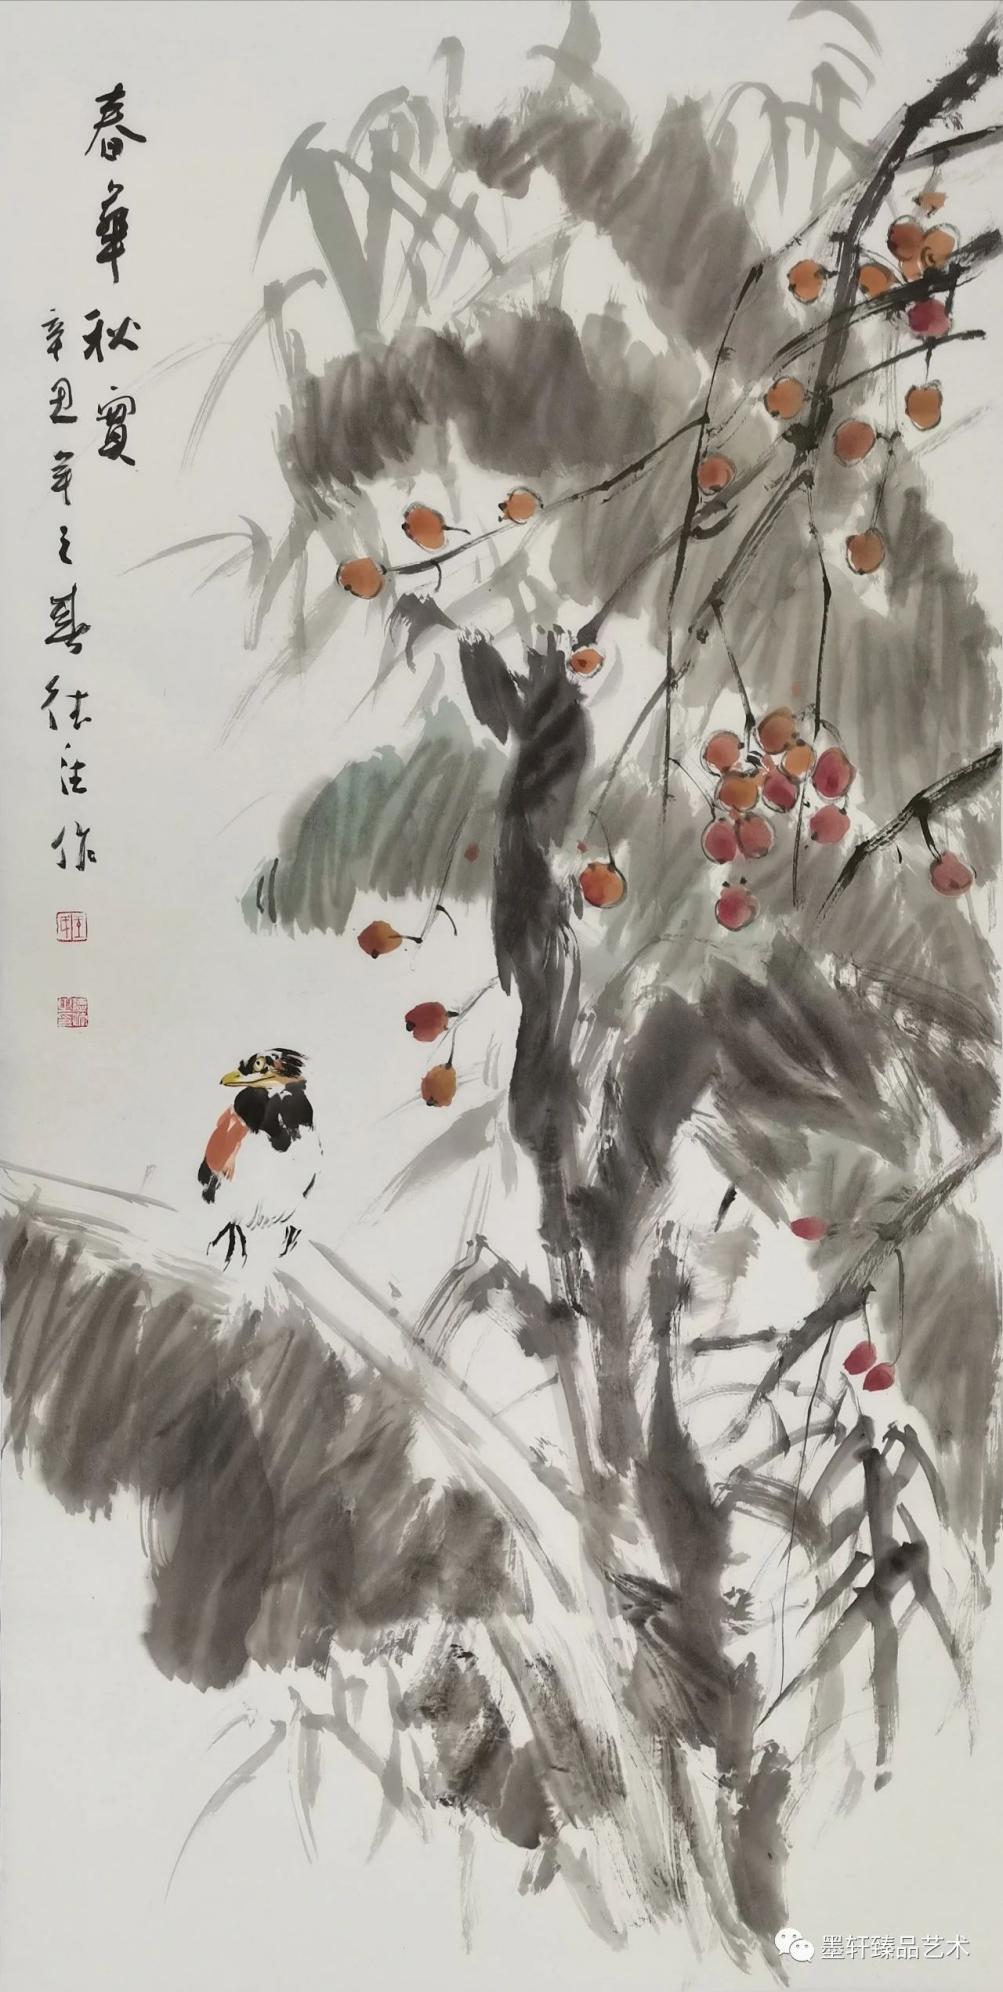 春華秋實
辛丑年之春德注作
墨轩臻品艺术